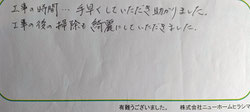 工事の時間…手早くしていただき助かりました。
工事の後の掃除も綺麗にしていただきました。
有難うございました。 株式会社ニューホームヒラシマ